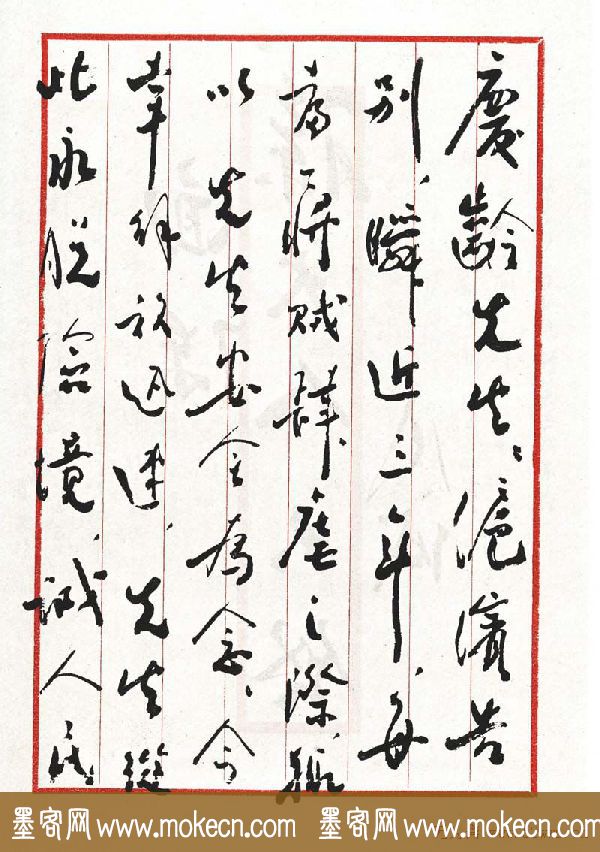 慶齡先生：滬濱告
别，瞬近三年，每
當蔣賊肆虐之際，輒
以 先生安全為念，今
幸解放迅速，先生從
此永脱險境，誠人民
墨客网 www.mokecn.com 墨客网 www.mokecn.com